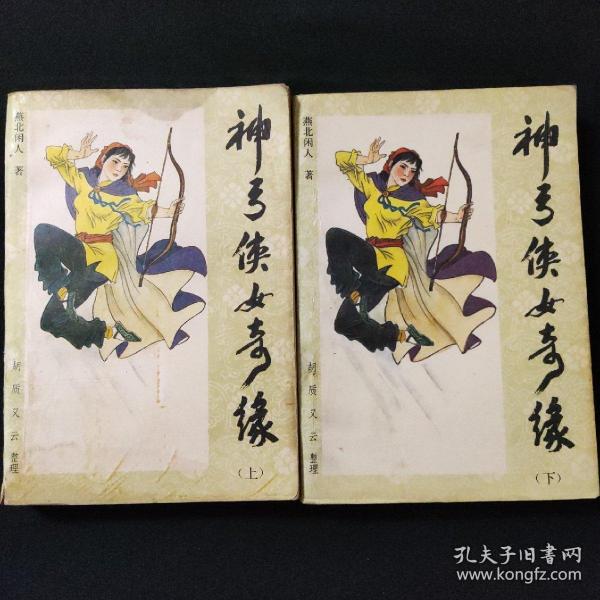 燕北闲人 著
神弓侠女奇缘
(上)
胡质义云 整理
燕北闲人 著
神弓侠女奇缘
(下)
胡质义云 整理
孔夫子旧书网
www.kongfz.com